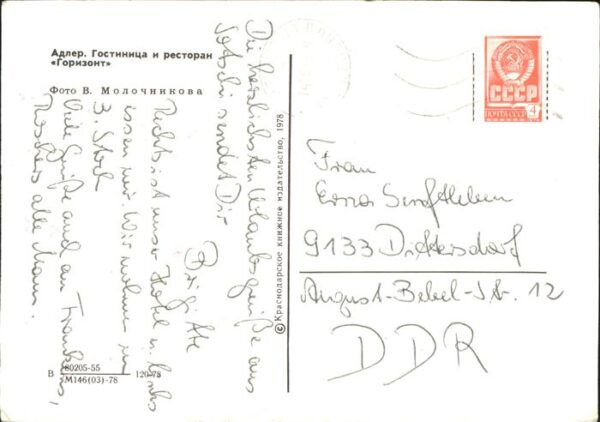 Адлер. Гостиница и ресторан
«Горизонт»
Фото В. Молочникова
Die herzlichsten Urlaubsgrüße aus
sendet Dir
Brigitte
Rechts ist unser Hotel u. links
essen wir. Wir wohnen im
3. Stock
Viele Grüße auch an
alle Mann.
© Краснодарское книжное издательство, 1978
В 80205-55
М146(03)-78
120-78
СССР
ПОЧТА СССР
4
Frau
Erna
9133 Dittersdorf
August-Bebel-Str. 12
DDR